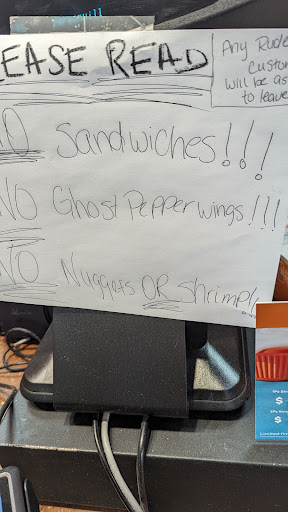 EASE READ
Any Rude
Custom
will be as
to leave
NO Sandwiches!!!
NO Ghost Pepper wings!!!
NO Nuggets OR Shrimp!
$
$